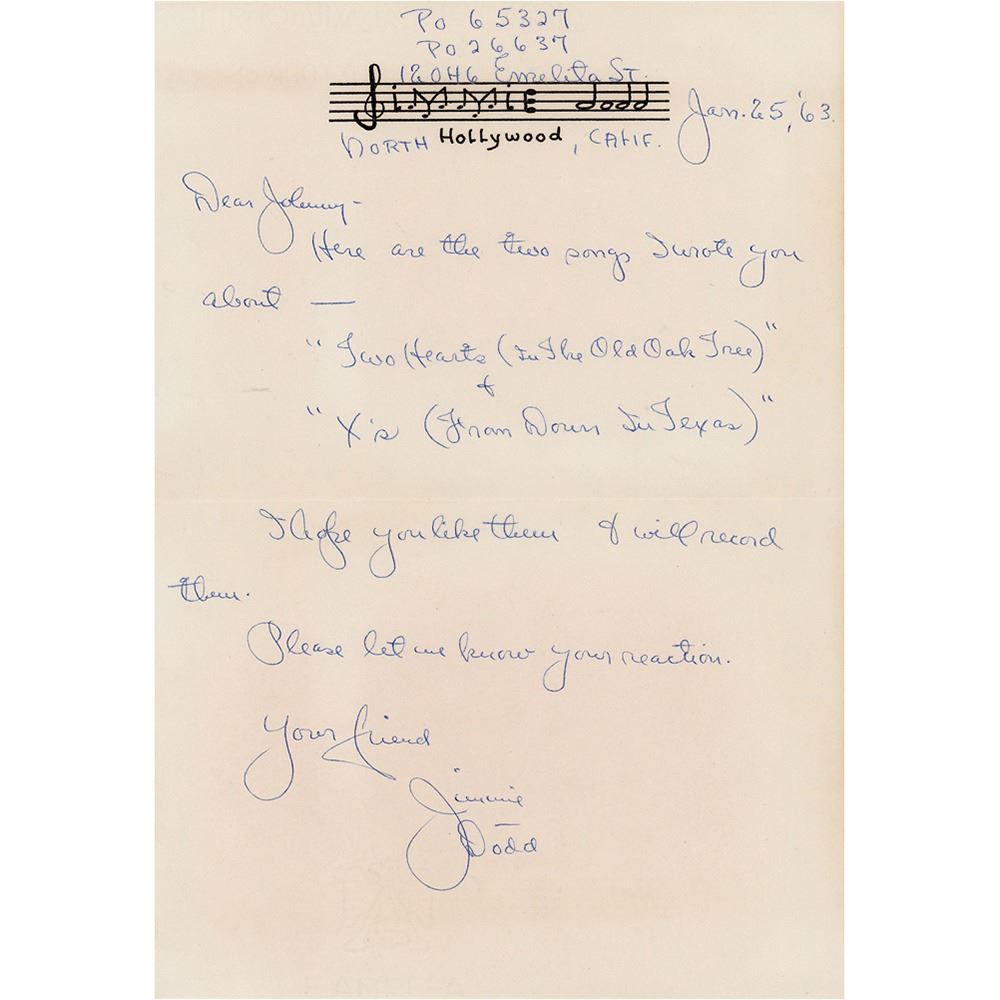 Po 65327
Po 26637
12046 Emelita St.
Jimmie Dodd
Jan. 25, '63.
North Hollywood, Calif.
Dear Johnny-
Here are the two songs I wrote you
about —
"Two Hearts (In The Old Oak Tree)"
&
"X's (From Down In Texas)"
I hope you like them & will record
them.
Please let me know your reaction.
Your friend
Jimmie
Dodd